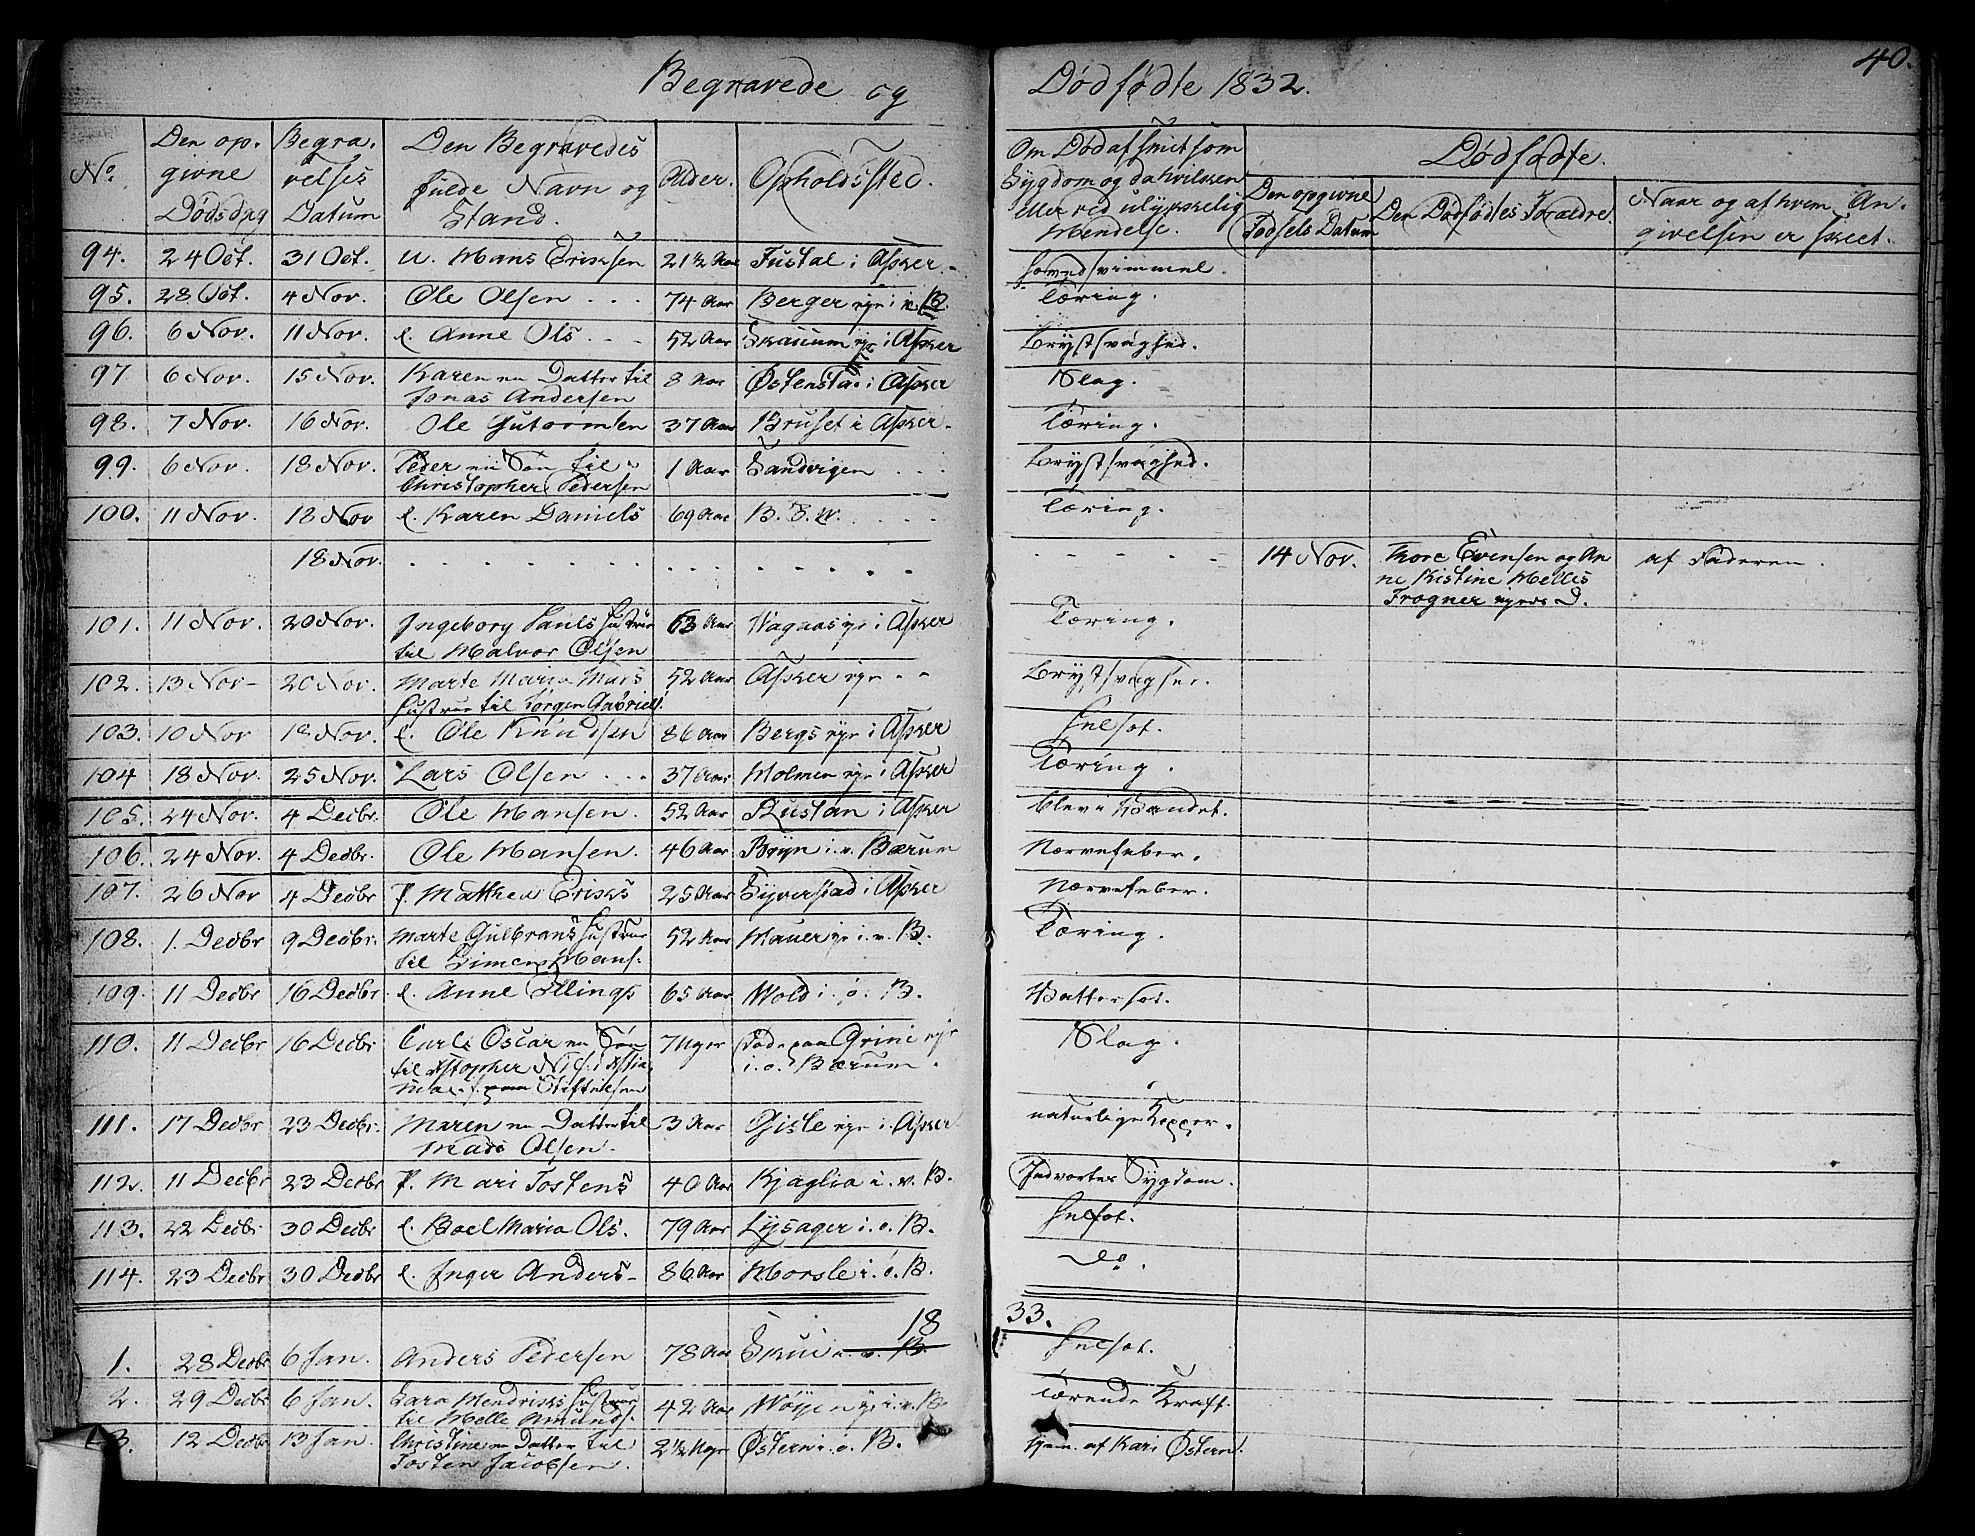 Begravede og Dødfødte 1832.
40.
No.
Den op-
givne
Dødsdag
Begra-
velses
Datum
Den Begravedes
fulde Navn og
Stand.
Alder.
Opholdssted.
Om Død af smitsom
Sygdom og da hvilken
eller ved ulykkelig
Hendelse.
Dødfødte.
Den opgivne
Fødsels Datum
Den Dødfødtes Forældre
Naar og af hvem An-
givelsen er skeet.
94. 24 Oct. 31 Oct. u. Hans Eriksen 21½ Aar Fustal i Asker. hovedsvimmel.
95. 28 Oct. 4 Nov. Ole Olsen 74 Aar Berger eje i v. B. Tæring.
96. 6 Nov. 11 Nov. l. Anne Ols 52 Aar Skaum eje i Asker Brystsvaghed.
97 6 Nov. 15 Nov. Karen en Datter til 8 Aar Østensta i Asker Slag.
Jonas Andersen
98. 7 Nov. 16 Nov. Ole Gutormsen 37 Aar Bruset i Asker. Tæring.
99. 6 Nov. 18 Nov. Peder en Søn til 1 Aar Sandvigen Brystsvaghed.
Christopher Pedersen
100. 11 Nov. 18 Nov l. Karen Daniels 69 Aar B. S. W. Tæring.
18 Nov. 14 Nov. Thore Evensen og An- af Faderen.
ne Kistine Helles
Frogner ejends D.
101. 11 Nov. 20 Nov. Ingeborg Pauls Hustrue 63 Aar Vagaas eje i Asker Tæring.
til Halvor Olsen
102. 13 Nov- 20 Nov. Marte Maria Mars 52 Aar Asker eje Brystsvaghed.
Hustrue til Jørgen Gabriels.
103. 10 Nov 18 Nov. l. Ole Knudsen 86 Aar Bergs eje i Asker Helsot.
104 18 Nov. 25 Nov. Lars Olsen 37 Aar Holmen eje i Asker Tæring.
105. 24 Nov. 4 Decbr. Ole Hansen. 52 Aar Rustan i Asker Blev i Vandet.
106. 24 Nov. 4 Decbr. Ole Hansen. 46 Aar Bryn i. v. Bærum Nervefeber.
107. 26 Nov 4 Decbr P. Mathea Eriks 25 Aar Syverstad i Asker Nervefeber.
108. 1. Decbr 9 Decbr. Marte Gulbrans Hustrue 52 Aar Hauer eje i. v. B. Tæring.
til Simen Hans.
109. 11 Decbr 16 Decbr. l. Anne Ellings 65 Aar Wold i. ø. B. Vattersot.
110. 11 Decbr 16 Decbr Carl Oscar en Søn 7 Uger Døde paa Grini eje Slag.
til Xstopher i Xstia- i. ø. Bærum.
111. 17 Decbr 23 Decbr. Maren en Datter til 3 Aar Gisle eje i. Asker naturlige Kopper.
Mads Olsen.
112. 11 Decbr 23 Decbr P. Mari Tostens 40 Aar Kjaglia i. v. B. Indvortes Sygdom.
113. 22 Decbr 30 Decbr l. Boel Maria Ols. 79 Aar Lysager i. ø. B. Helsot.
114. 23 Decbr 30 Decbr l. Inger Anders- 86 Aar Horsle i. ø. B. do.
18 33.
1. 28 Decbr 6 Jan. Anders Pedersen 78 Aar Skui i. v. B. Helsot.
2. 29 Decbr 6 Jan. Sara Hendriks Hustrue 42 Aar Wøyen eje i. v. B tærende Kraft.
til Helle Amunds.
3. 12 Decbr 13 Jan. Christine en Datter til 2½ Uger Østern i. ø. B. hjem. af Kari Østern.
Tosten Jacobsen.